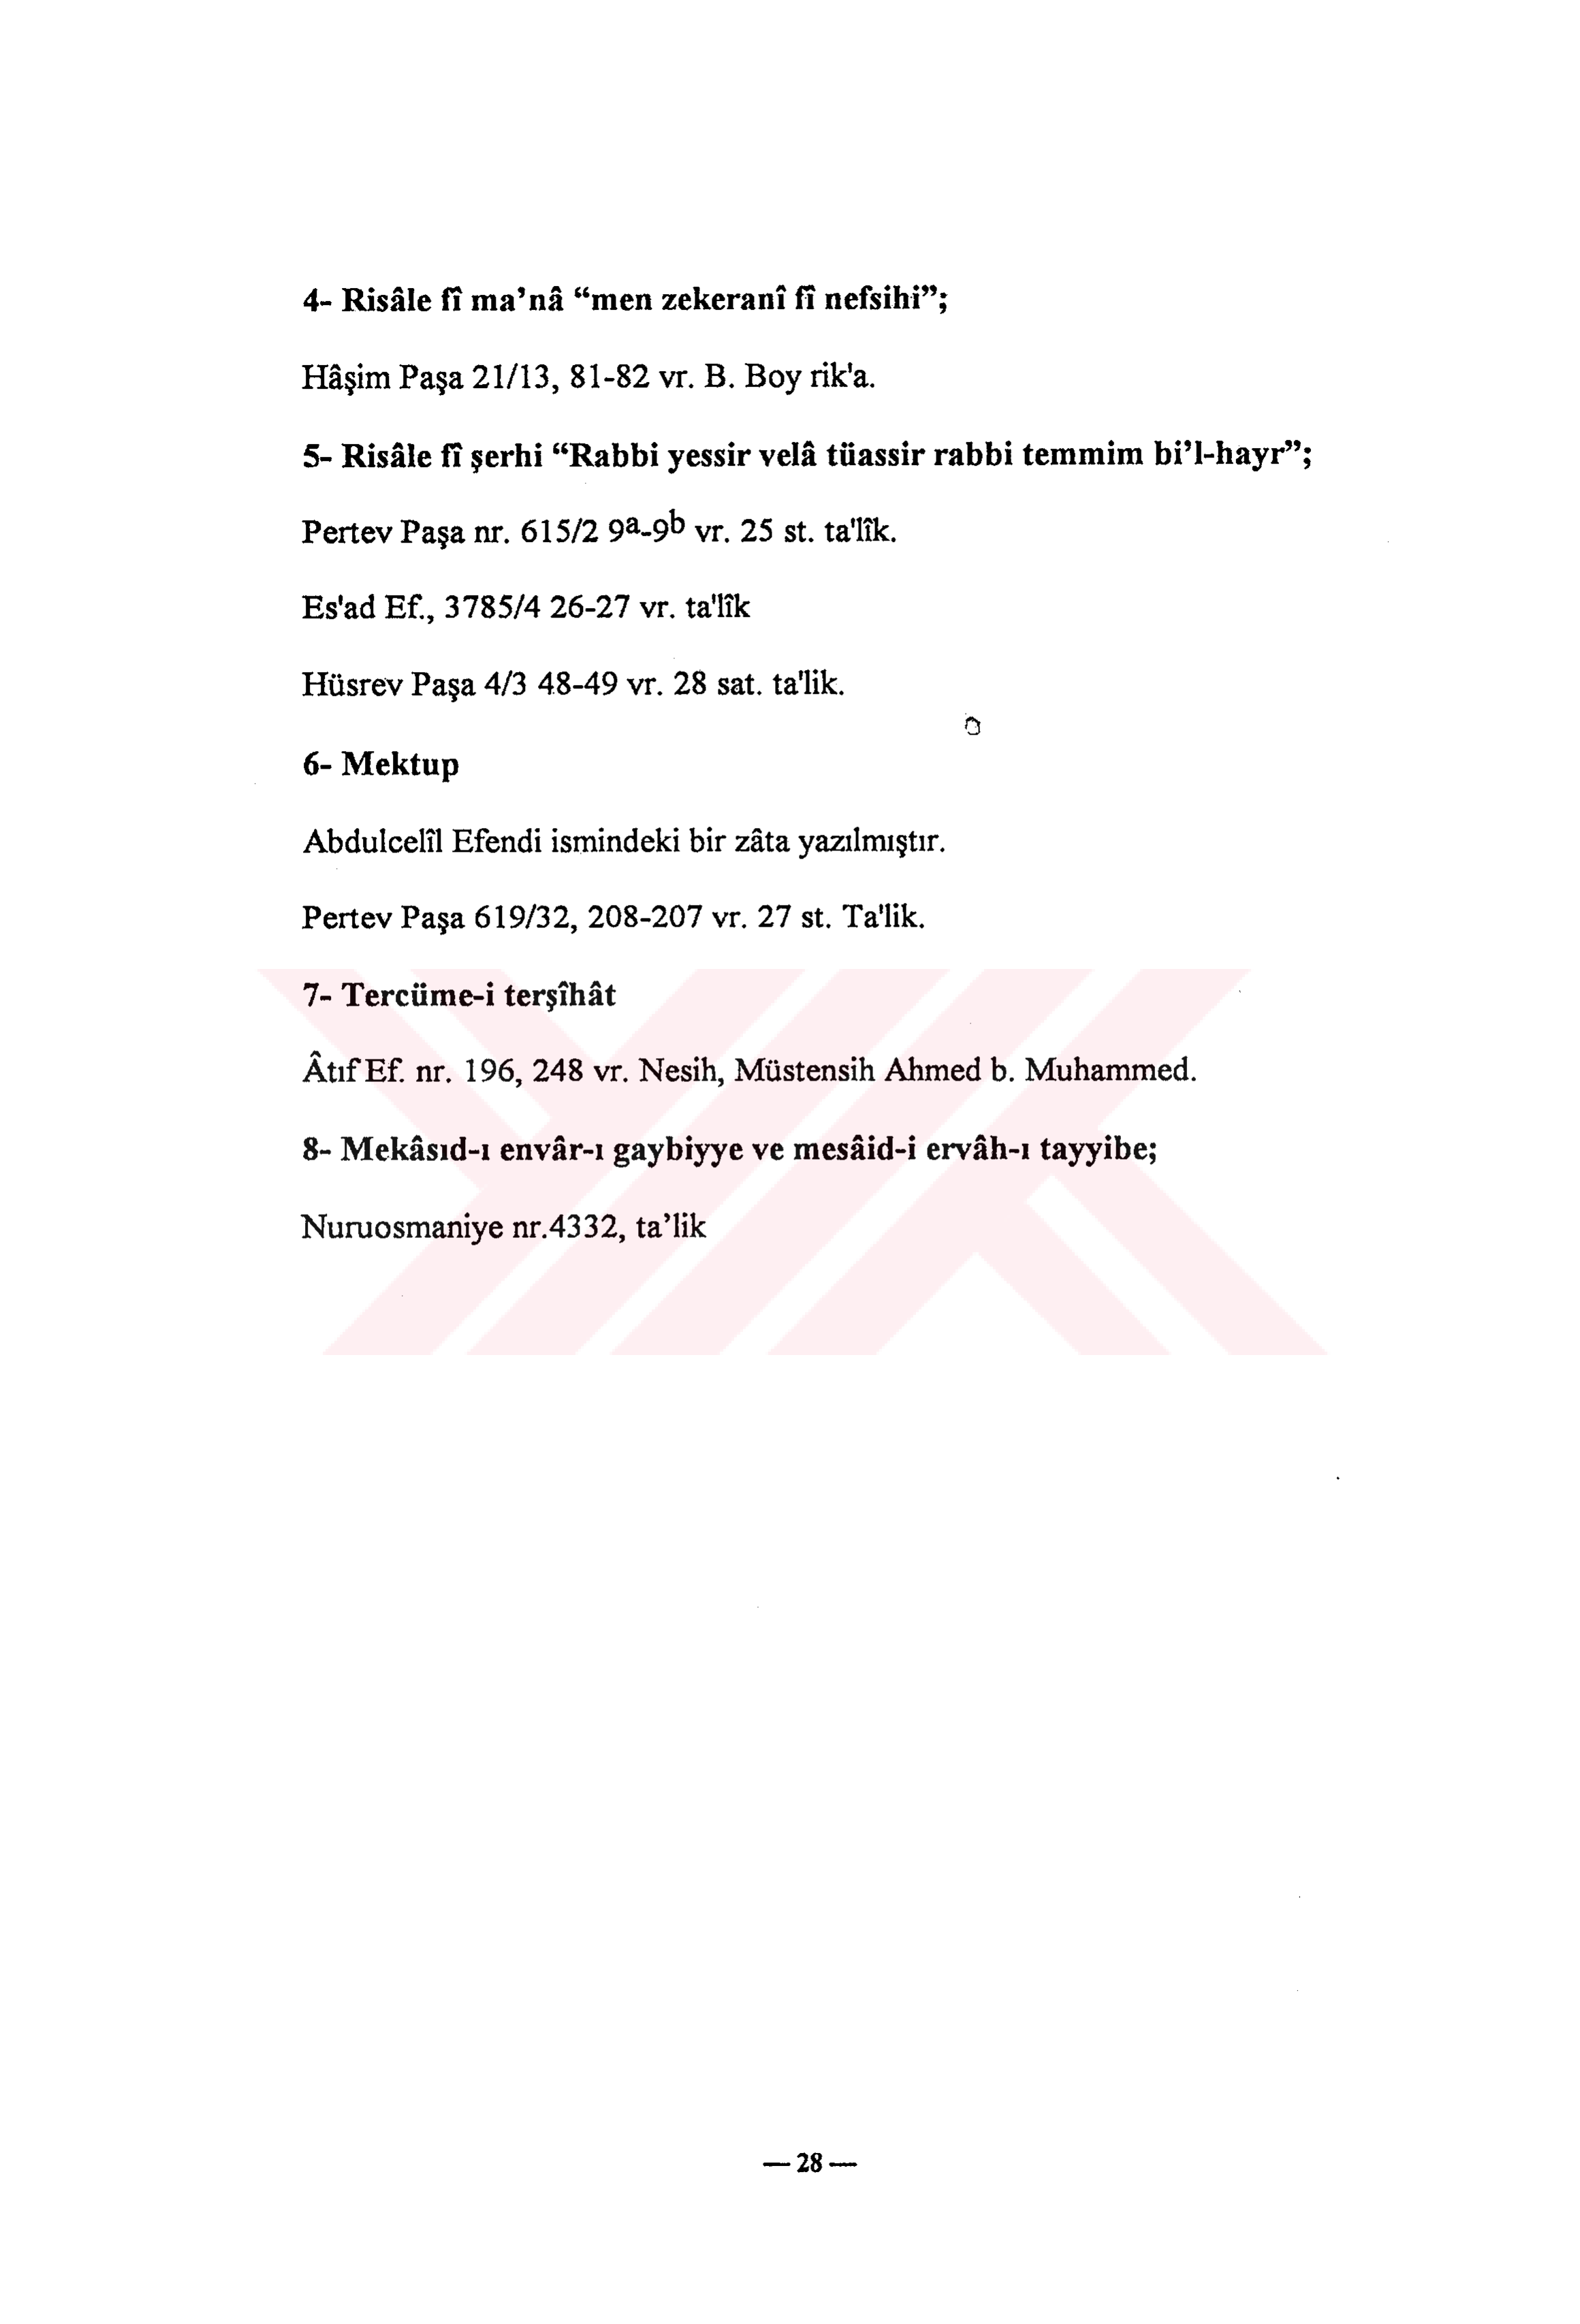 4- Risâle fî ma’nâ “men zekeranî fî nefsihi”;
Hâşim Paşa 21/13, 81-82 vr. B. Boy rik'a.
5- Risâle fî şerhi “Rabbi yessir velâ tüassir rabbi temmim bi’l-hayr”;
Pertev Paşa nr. 615/2 9a-9b vr. 25 st. ta'lîk.
Es'ad Ef., 3785/4 26-27 vr. ta'lîk
Hüsrev Paşa 4/3 48-49 vr. 28 sat. ta'lik.
6- Mektup
Abdulcelîl Efendi ismindeki bir zâta yazılmıştır.
Pertev Paşa 619/32, 208-207 vr. 27 st. Ta'lik.
7- Tercüme-i terşîhât
Âtıf Ef. nr. 196, 248 vr. Nesih, Müstensih Ahmed b. Muhammed.
8- Mekâsıd-ı envâr-ı gaybiyye ve mesâid-i ervâh-ı tayyibe;
Nuruosmaniye nr.4332, ta’lik
— 28 —